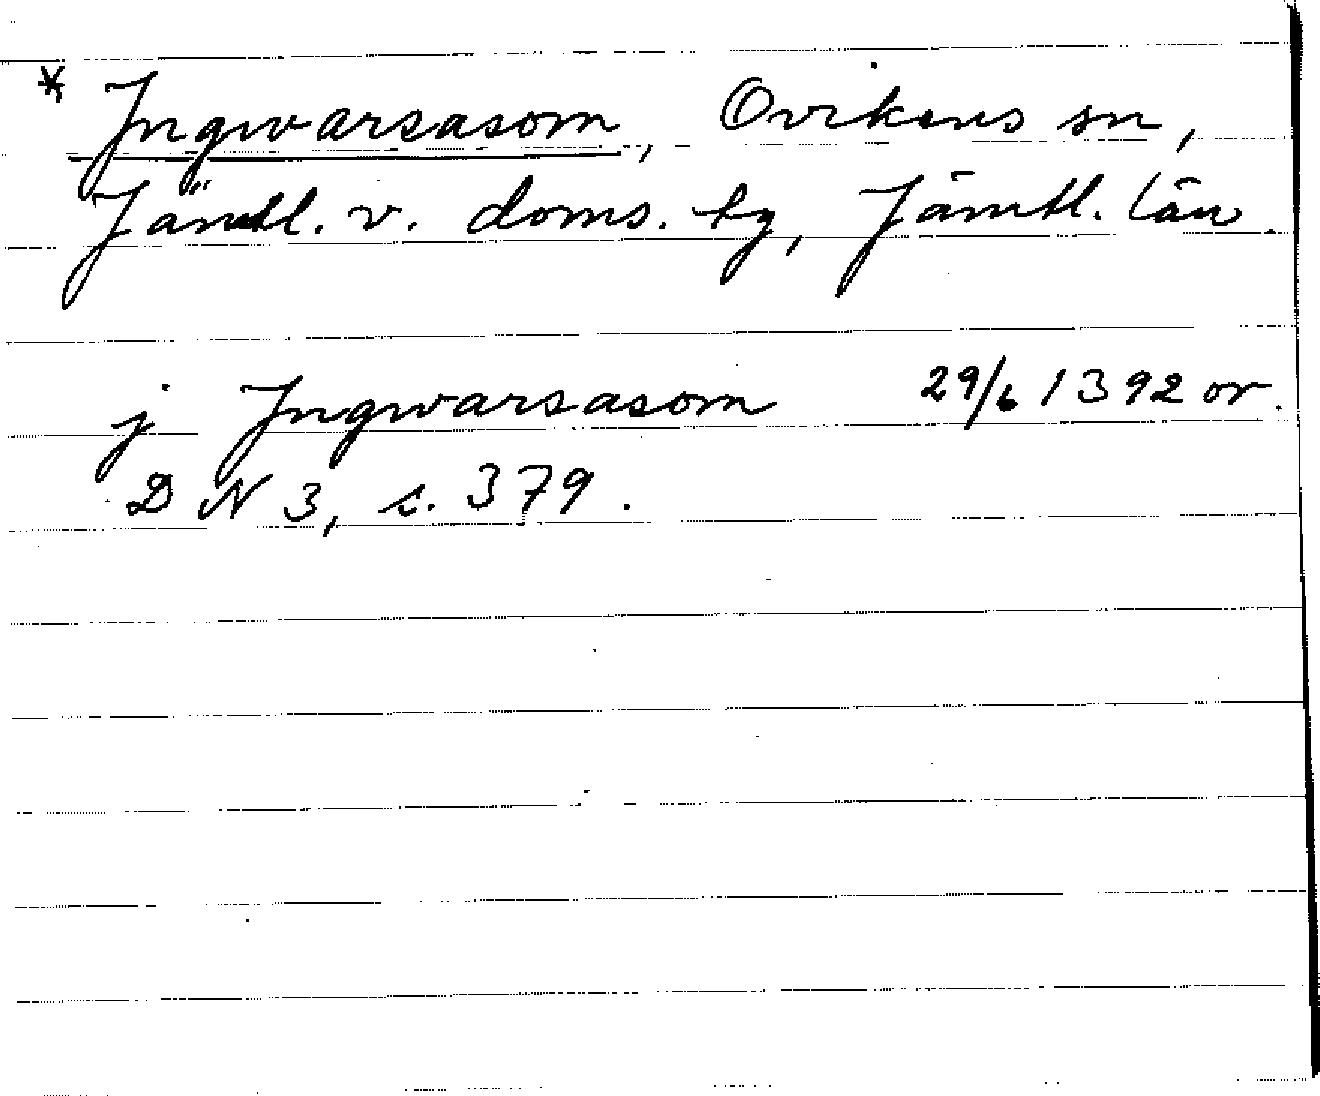 * Ingwarsasom, Ovikens sn,
Jämtl. v. doms. tg, Jämtl. län.
j Ingwarsasom 29/6 1392 or.
DN 3, s. 379.